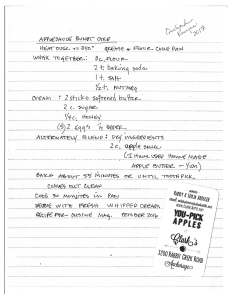 2017
APPLESAUCE BUNDT CAKE
HEAT OVEN TO 350° GREASE & FLOUR CAKE PAN
WHISK TOGETHER: 3 C. FLOUR
2 t. baking soda
1 t. SALT
1/2 t. NUTMEG
CREAM: 2 sticks softened butter
2 c. sugar
1/4 c. HONEY
(3) 2 egg's & BEATER
ALTERNATELY BLEND: DRY INGREDIENTS
2 c. apple sauce
(I HAVE USED HOME MADE
APPLE BUTTER - YUM)
BAKE ABOUT 55 MINUTES OR UNTIL TOOTHPICK
COMES OUT CLEAN
COOL 30 MINUTES IN PAN
SERVE WITH FRESH WHIPPED CREAM
RECIPE FROM - CUISINE MAG. OCTOBER 2016
YOU-PICK
APPLES
Clark's